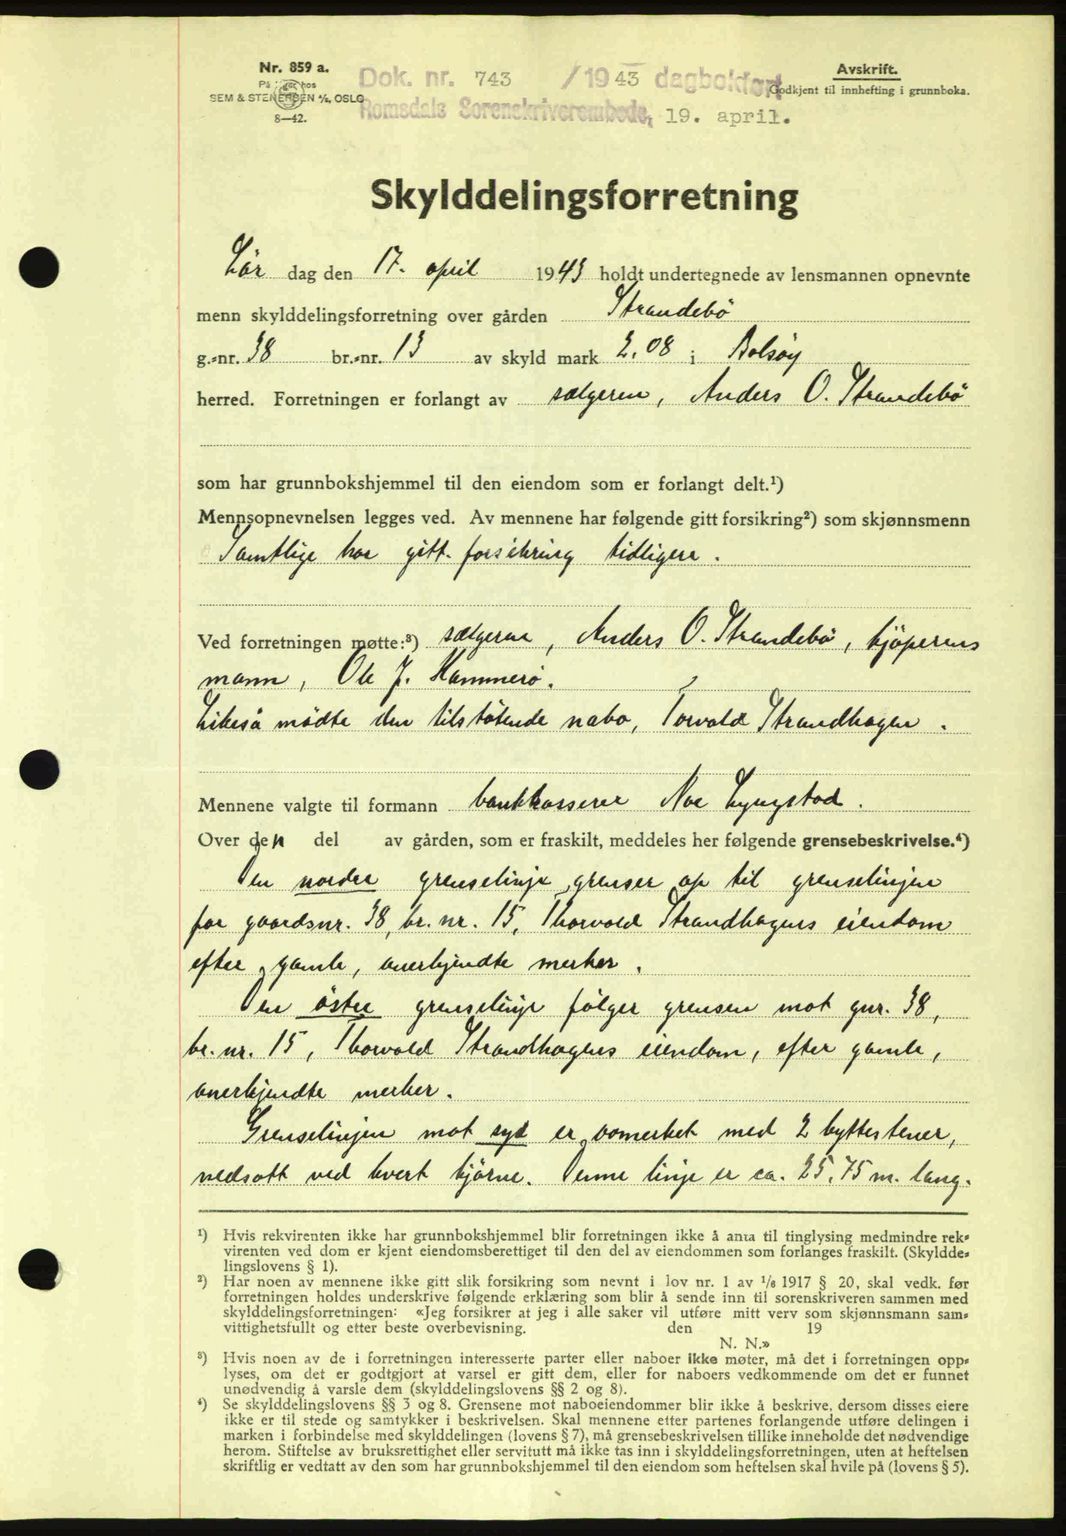 Nr. 859 a.
På lager hos
SEM & STENERSEN A/S, OSLO
8—42.
Dok. nr. 743 /1943 dagbokført
Romsdals Sorenskriverembede, 19. april.
Avskrift.
Godkjent til innhefting i grunnboka.
Skylddelingsforretning
Lör dag den 17. april 1943 holdt undertegnede av lensmannen opnevnte
menn skylddelingsforretning over gården Strandebö
g.-nr. 38 br.-nr. 13 av skyld mark 2,08 i Bolsøy
herred. Forretningen er forlangt av sælgeren, Anders O. Strandebö
som har grunnbokshjemmel til den eiendom som er forlangt delt.¹)
Mennsopnevnelsen legges ved. Av mennene har følgende gitt forsikring²) som skjønnsmenn
Samtlige har gitt forsikring tidligere.
Ved forretningen møtte:³) sælgeren, Anders O. Strandebö, kjöperens
mann, Ole J. Hammerö.
Likeså mödte den tilstötende nabo, Torvald Strandhagen.
Mennene valgte til formann bankkasserer Noe Lyngstad.
Over den del av gården, som er fraskilt, meddeles her følgende grensebeskrivelse.⁴)
Den nordre grenselinje grenser op til grenselinjen
for gaardsnr. 38, br. nr. 15, Thorvald Strandhagens eiendom
efter gamle, anerkjendte merker.
Den östre grenselinje fölger grensen mot gnr. 38,
br. nr. 15, Thorvald Strandhagens eiendom, efter gamle,
anerkjendte merker.
Grenselinjen mot syd er avmerket med 2 byttestener,
nedsatt ved hvert hjörne. Denne linje er ca. 25,75 m. lang.
¹) Hvis rekvirenten ikke har grunnbokshjemmel blir forretningen ikke å anta til tinglysing medmindre rek-
virenten ved dom er kjent eiendomsberettiget til den del av eiendommen som forlanges fraskilt. (Skyldde-
lingslovens § 1).
²) Har noen av mennene ikke gitt slik forsikring som nevnt i lov nr. 1 av 1/6 1917 § 20, skal vedk. før
forretningen holdes underskrive følgende erklæring som blir å sende inn til sorenskriveren sammen med
skylddelingsforretningen: «Jeg forsikrer at jeg i alle saker vil utføre mitt verv som skjønnsmann sam-
vittighetsfullt og etter beste overbevisning. den 19
N. N.»
³) Hvis noen av de i forretningen interesserte parter eller naboer ikke møter, må det i forretningen opp-
lyses, om det er godtgjort at varsel er gitt dem, eller for naboers vedkommende om det er funnet
unødvendig å varsle dem (skylddelingslovens §§ 2 og 8).
⁴) Se skylddelingslovens §§ 3 og 8. Grensene mot naboeiendommer blir ikke å beskrive, dersom disses eiere
ikke er til stede og samtykker i beskrivelsen. Skal mennene etter partenes forlangende utføre delingen i
marken i forbindelse med skylddelingen (lovens § 7), må grensebeskrivelsen tillike inneholde det nødvendige
herom. Stiftelse av bruksrettighet eller servitutt må ikke tas inn i skylddelingsforretningen, uten at heftelsen
skriftlig er vedtatt av den som har grunnbokshjemmel til den eiendom som heftelsen skal hvile på (lovens § 5).